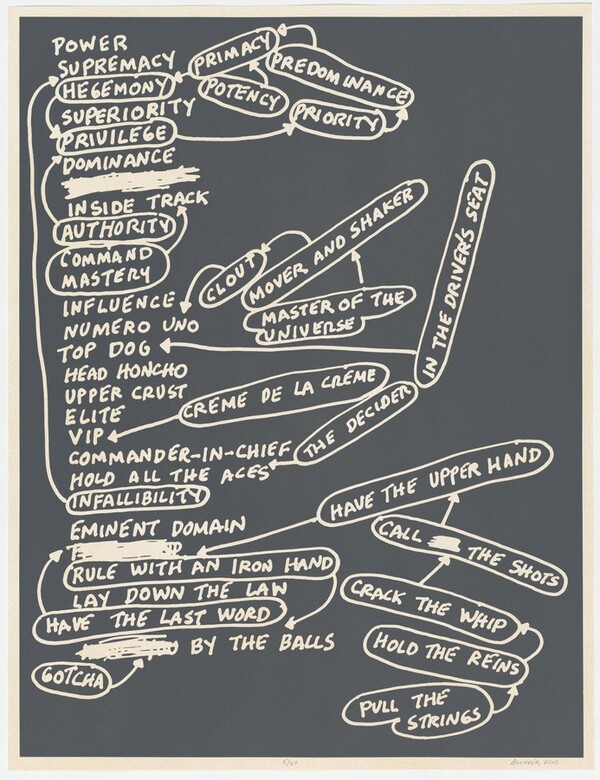 POWER
SUPREMACY
HEGEMONY
SUPERIORITY
PRIVILEGE
DOMINANCE
PRIMACY
PREDOMINANCE
POTENCY
PRIORITY
INSIDE TRACK
AUTHORITY
COMMAND
MASTERY
INFLUENCE
NUMERO UNO
TOP DOG
HEAD HONCHO
UPPER CRUST
ELITE
VIP
COMMANDER-IN-CHIEF
HOLD ALL THE ACES
INFALLIBILITY
CLOUT
MOVER AND SHAKER
MASTER OF THE
UNIVERSE
IN THE DRIVER'S SEAT
CRÈME DE LA CRÈME
THE DECIDER
EMINENT DOMAIN
RULE WITH AN IRON HAND
LAY DOWN THE LAW
HAVE THE LAST WORD
BY THE BALLS
GOTCHA
HAVE THE UPPER HAND
CALL THE SHOTS
CRACK THE WHIP
HOLD THE REINS
PULL THE
STRINGS